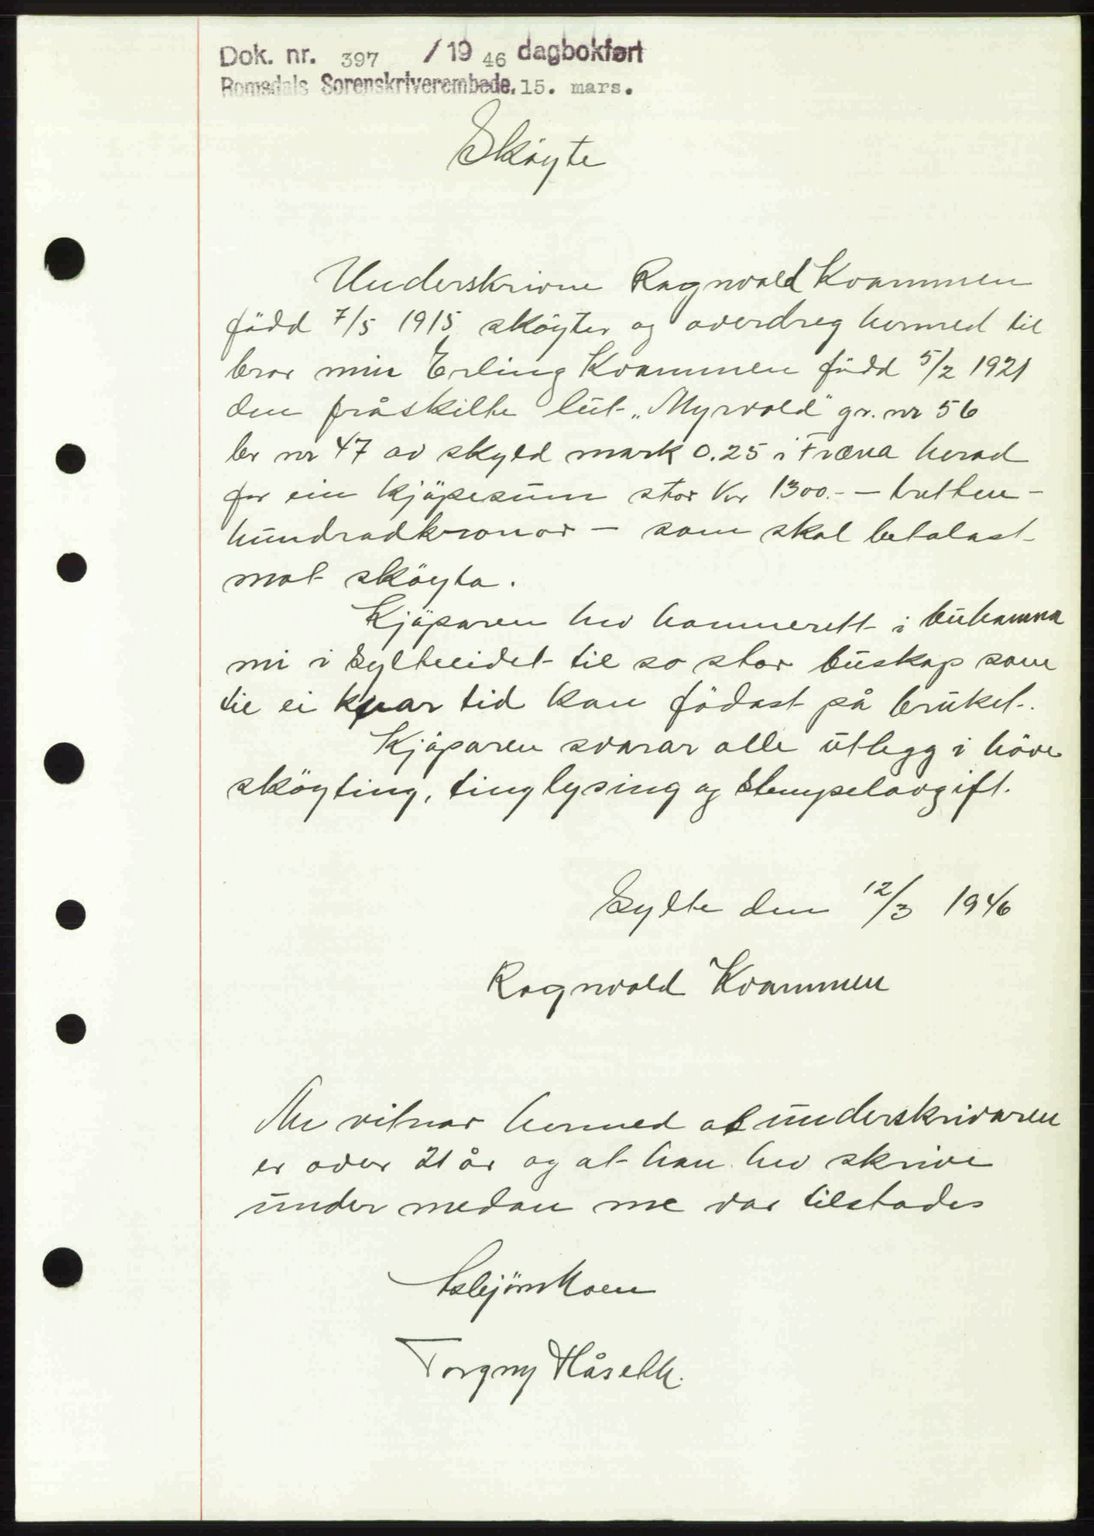 Dok. nr. 397 / 19 46 dagbokført
Romsdals Sorenskriverembede, 15. mars.
Skøyte
Underskrivne Ragnvald Kvammen
född 7/5 1915 skøyter og overdreg hermed til
bror min Erling Kvammen född 5/2 1921
den fråskilte lut „Myrvold" gr. nr 56
br nr 47 av skyld mark 0.25 i Fræna herad
for ein kjøpesum stor kr 1300.- — tretten-
hundradkronor — som skal betalast
mot skøyta.
Kjøparen hev hamnerett i buhamna
mi i Sylteeidet til so stor buskap som
til ei kvar tid kan födast på bruket.
Kjøparen svarar alle utlegg i høve
skøyting, tinglysing og stempelavgift.
Sylte den 12/3 1946
Ragnvald Kvammen
Me vitnar hermed at underskrivaren
er over 21 år og at han hev skrive
under medan me var tilstades
Asbjörn Moen
Torgny Håseth.